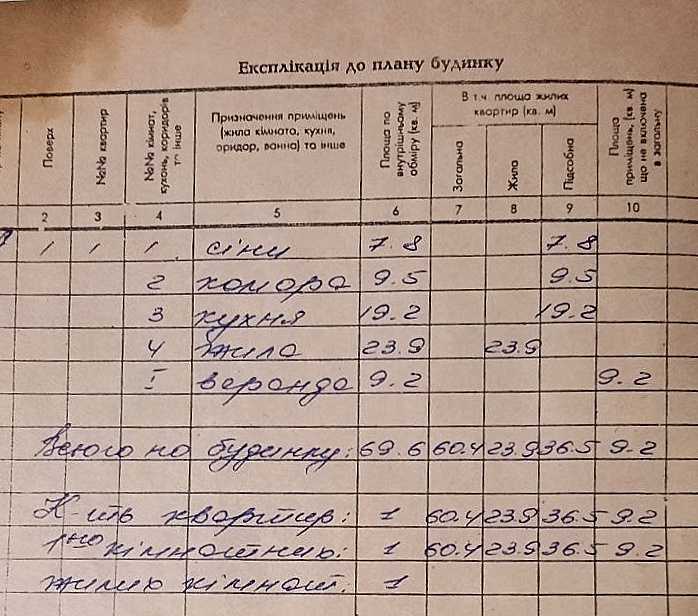 Експлікація до плану будинку
Поверх | №№ квартир | №№ кімнат, кухонь, коридорів та інше | Призначення приміщень (жила кімната, кухня, оридор, ванна) та інше | Площа по внутрішньому обміру (кв. м) | В т. ч. площа жилих квартир (кв. м) | Загальна | Жила | Підсобна | Площа приміщень, (кв. м) що не включена в загальну
2 3 4 5 6 7 8 9 10
1 1 1 сіни 7.8 7.8
2 комора 9.5 9.5
3 кухня 19.2 19.2
4 жила 23.9 23.9
I веранда 9.2 9.2
Всього по будинку: 69.6 60.4 23.9 36.5 9.2
К-ить квартир: 1 60.4 23.9 36.5 9.2
1но кімнатних: 1 60.4 23.9 36.5 9.2
жилих кімнат: 1